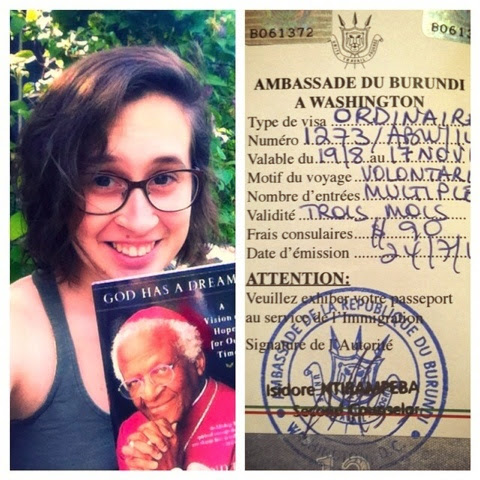 GOD HAS A DREAM
A
Vision
Hope
for Ou
Time
B061372
B0613
AMBASSADE DU BURUNDI
A WASHINGTON
Type de visa ORDINAIRE
Numéro 1273/
Valable du 19/8 au 17 NOV
Motif du voyage VOLONTAR
Nombre d'entrées MULTIPLE
Validité TROIS MOIS
Frais consulaires $ 90
Date d'émission 24/7/1
ATTENTION:
Veuillez exhiber votre passeport
au service de l'Immigration
Signature de l'Autorité
Isidore NTIRAMPEBA
Second Counselor
AMBASSADE DE LA REPUBLIQUE DU BURUNDI
WASHINGTON D.C.